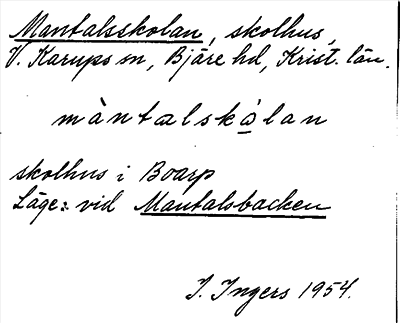 Mantalsskolan, skolhus,
V. Karups sn, Bjäre hd, Krist. län.
màntalskålan
skolhus i Boarp
Läge: vid Mantalsbacken
I. Ingers 1954.